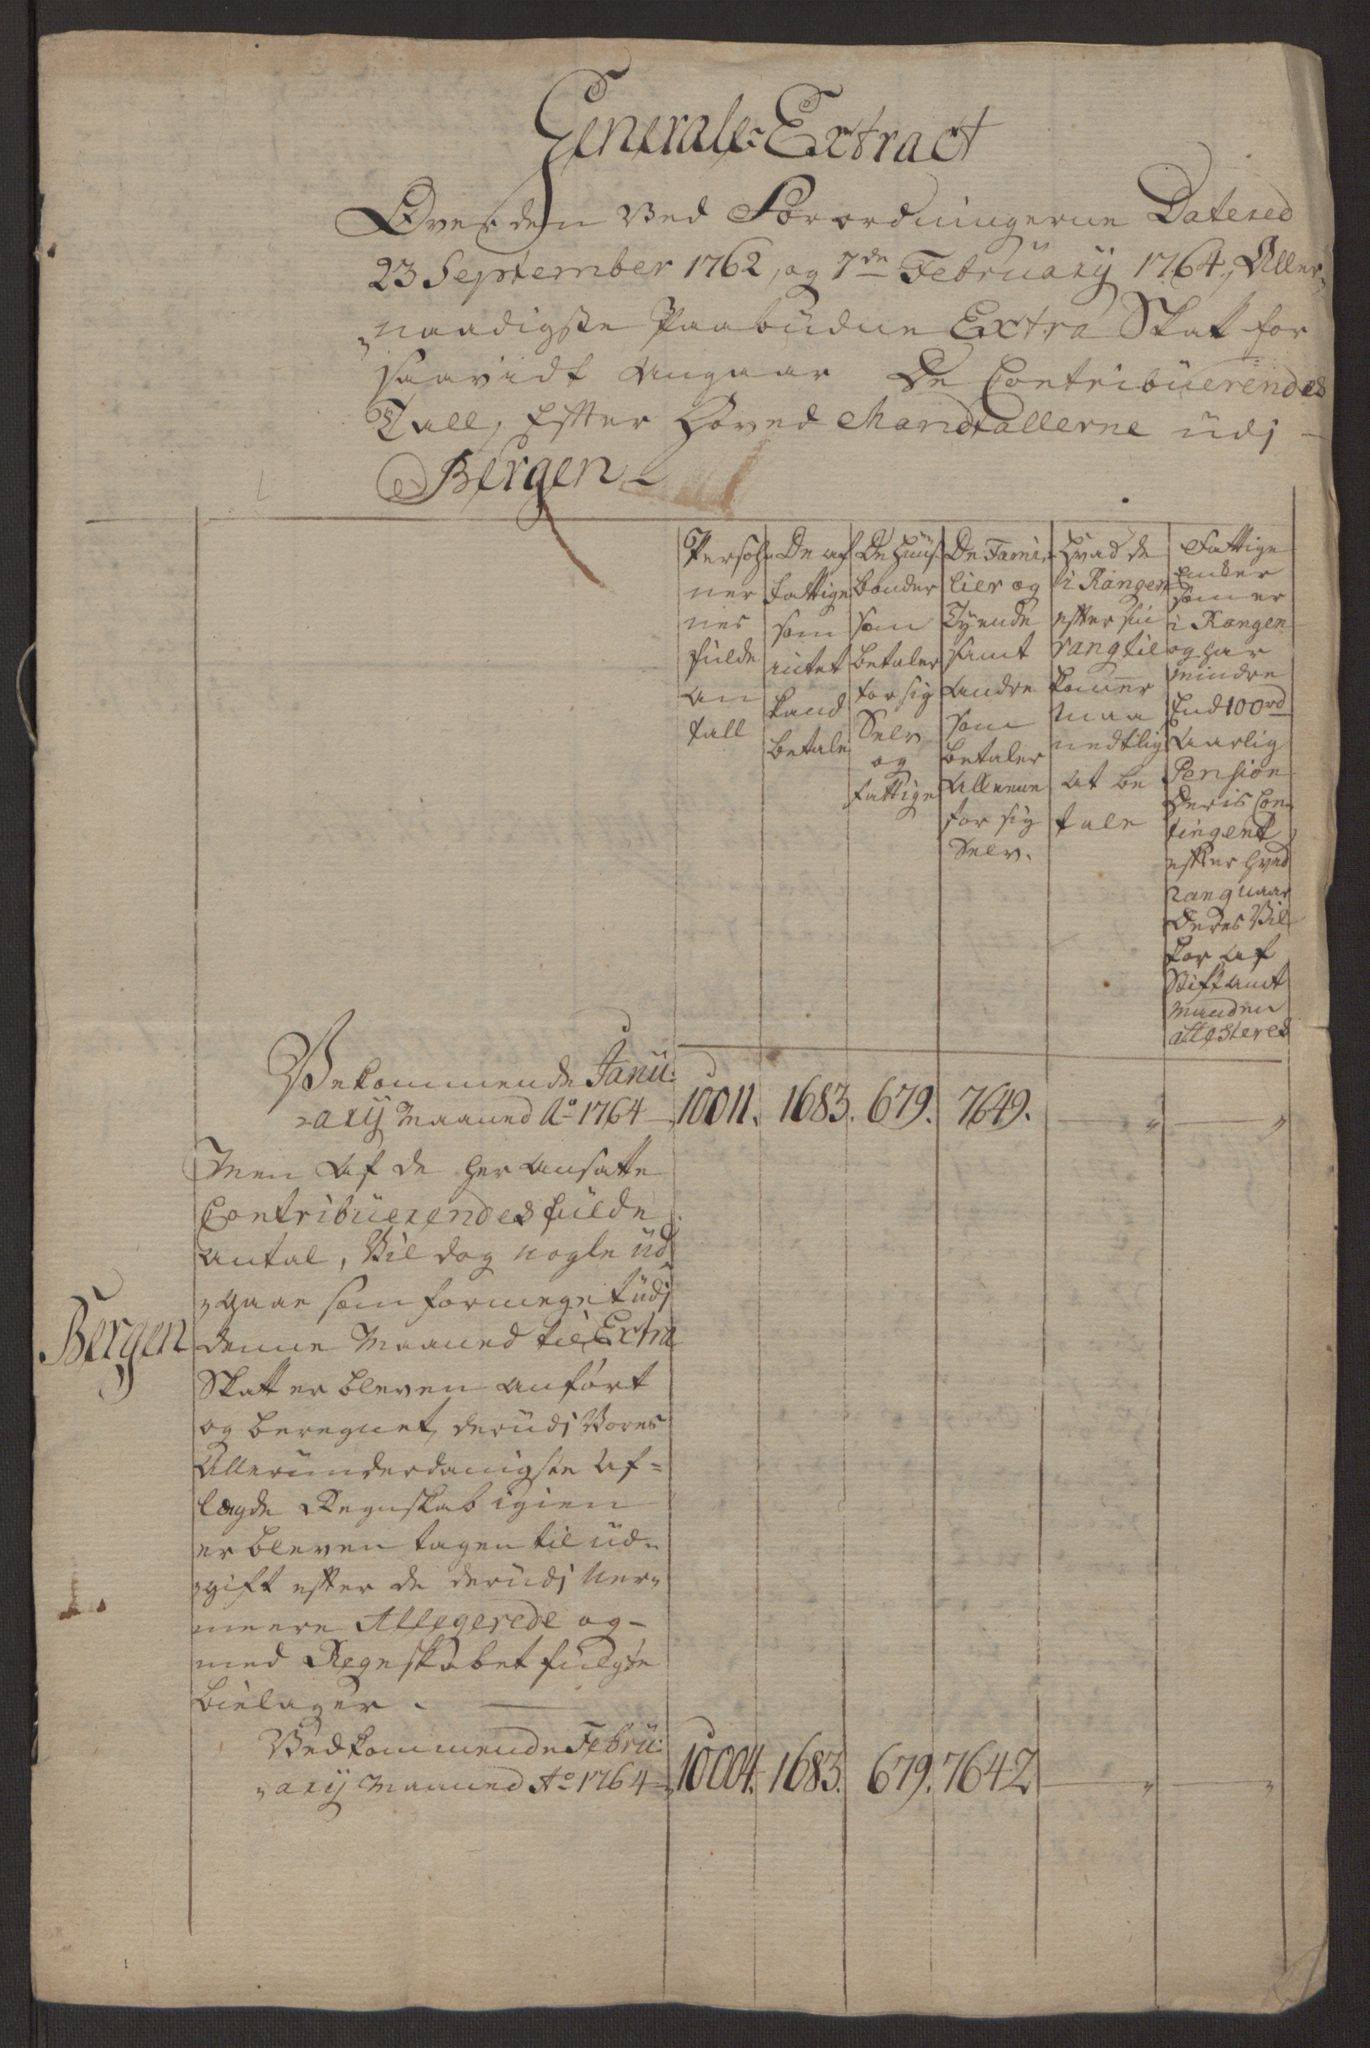 Generale Extract
Over den ved Forordningerne Datered
23 September 1762, og 7de February 1764, Aller
naadigste Paabudne Extra Skat for
saavidt Angaar De Contribuerendes
Tall, Efter Hoved Mandtallerne udj
Bergen
Persoh
ner
nes
fulde
An
tall
De af
fattige
som
intet
kand
betale
De Huus
bonder
som
betaler
for sig
Selv
og
fattige
De Fami
lier og
Tyende
samt
Andre
som
betaler
Alleene
for sig
Selv.
Hvad de
i Rangen
efter sin
rang til
kommer
maa
nedtlig
at be
tale
Fattige
Enker
som er
i Rangen
og har
mindre
End 100 rd
Aarlig
Pension
Deris Con
tingent
efter hvad
rang naar
Deres Vil
kor af
Stiftamt
manden
attestered
Vekommende Janu:
ary Maaned Ao 1764 10011. 1683. 679. 7649.
Men Af de her Ansatte
Contribuerendes fulde
Antal, Vil dog nogle ud
gaae som formeget udj
Bergen
denne Maaned til Extra
Skatt er bleven anført
og beregnet, derudj Vores
Allerunderdanigste Af=
lægde Regnskab igien
er bleven tagen til ud
gift efter de derudj Ner
meere Allegerede og
med Regnskabet fulgte
bielager.
Vedkommende Febru:
ary Maaned Ao 1764 10004. 1683. 679. 7642